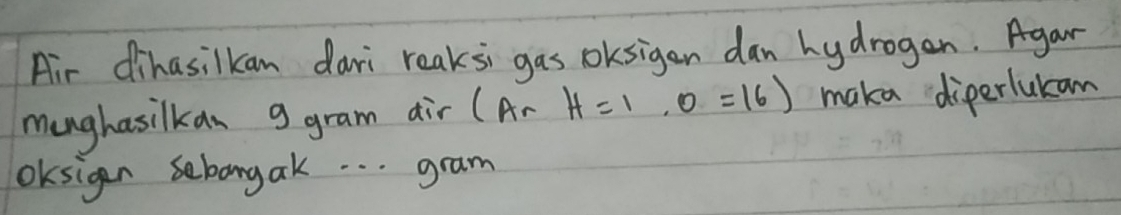 Air dihasilkan dari reaksi gas oksigen dan hydrogen. Agar
menghasilkan 9 gram air (Ar H = 1 , O = 16) maka diperlukam
oksigen sebanyak ... gram